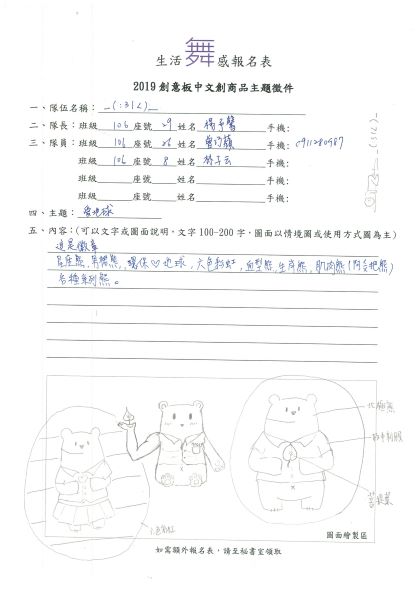 生活舞感報名表
2019創意板中文創商品主題徵件
一、隊伍名稱：_(:3」∠)_
二、隊長：班級 106 座號 29 姓名 楊予馨 手機：
三、隊員：班級 106 座號 26 姓名 手機：0911280987
班級 106 座號 8 姓名 手機：
班級 座號 姓名 手機：
班級 座號 姓名 手機：
四、主題：愛地球
五、內容：(可以文字或圖面說明，文字100-200字，圖面以情境圖或使用方式圖為主)
這是徽章
星座熊，環保♡地球，六色彩虹，血型熊，生肖熊，肌肉熊(阿金肥熊)
各種系列熊。
北極熊
板中制服
菩提葉
六色彩虹
圖面繪製區
如需額外報名表，請至秘書室領取